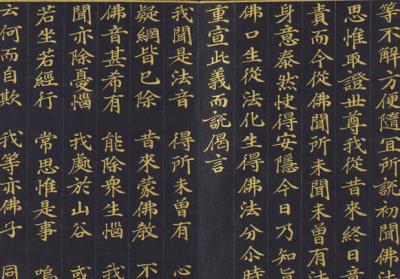 等不解方便隨宜所說初聞佛法
思惟取證世尊我從昔來終日竟
責而今從佛聞所未聞未曾有法
身意泰然快得安隱今日乃知真
佛口生從法化生得佛法分尒時
重宣此義而說偈言
我聞是法音 得所未曾有 心
疑網皆已除 昔來蒙佛教 不
佛音甚希有 能除眾生惱 我
聞亦除憂惱 我處於山谷 或
若坐若經行 常思惟是事 嗚
云何而自欺 我等亦佛子 同